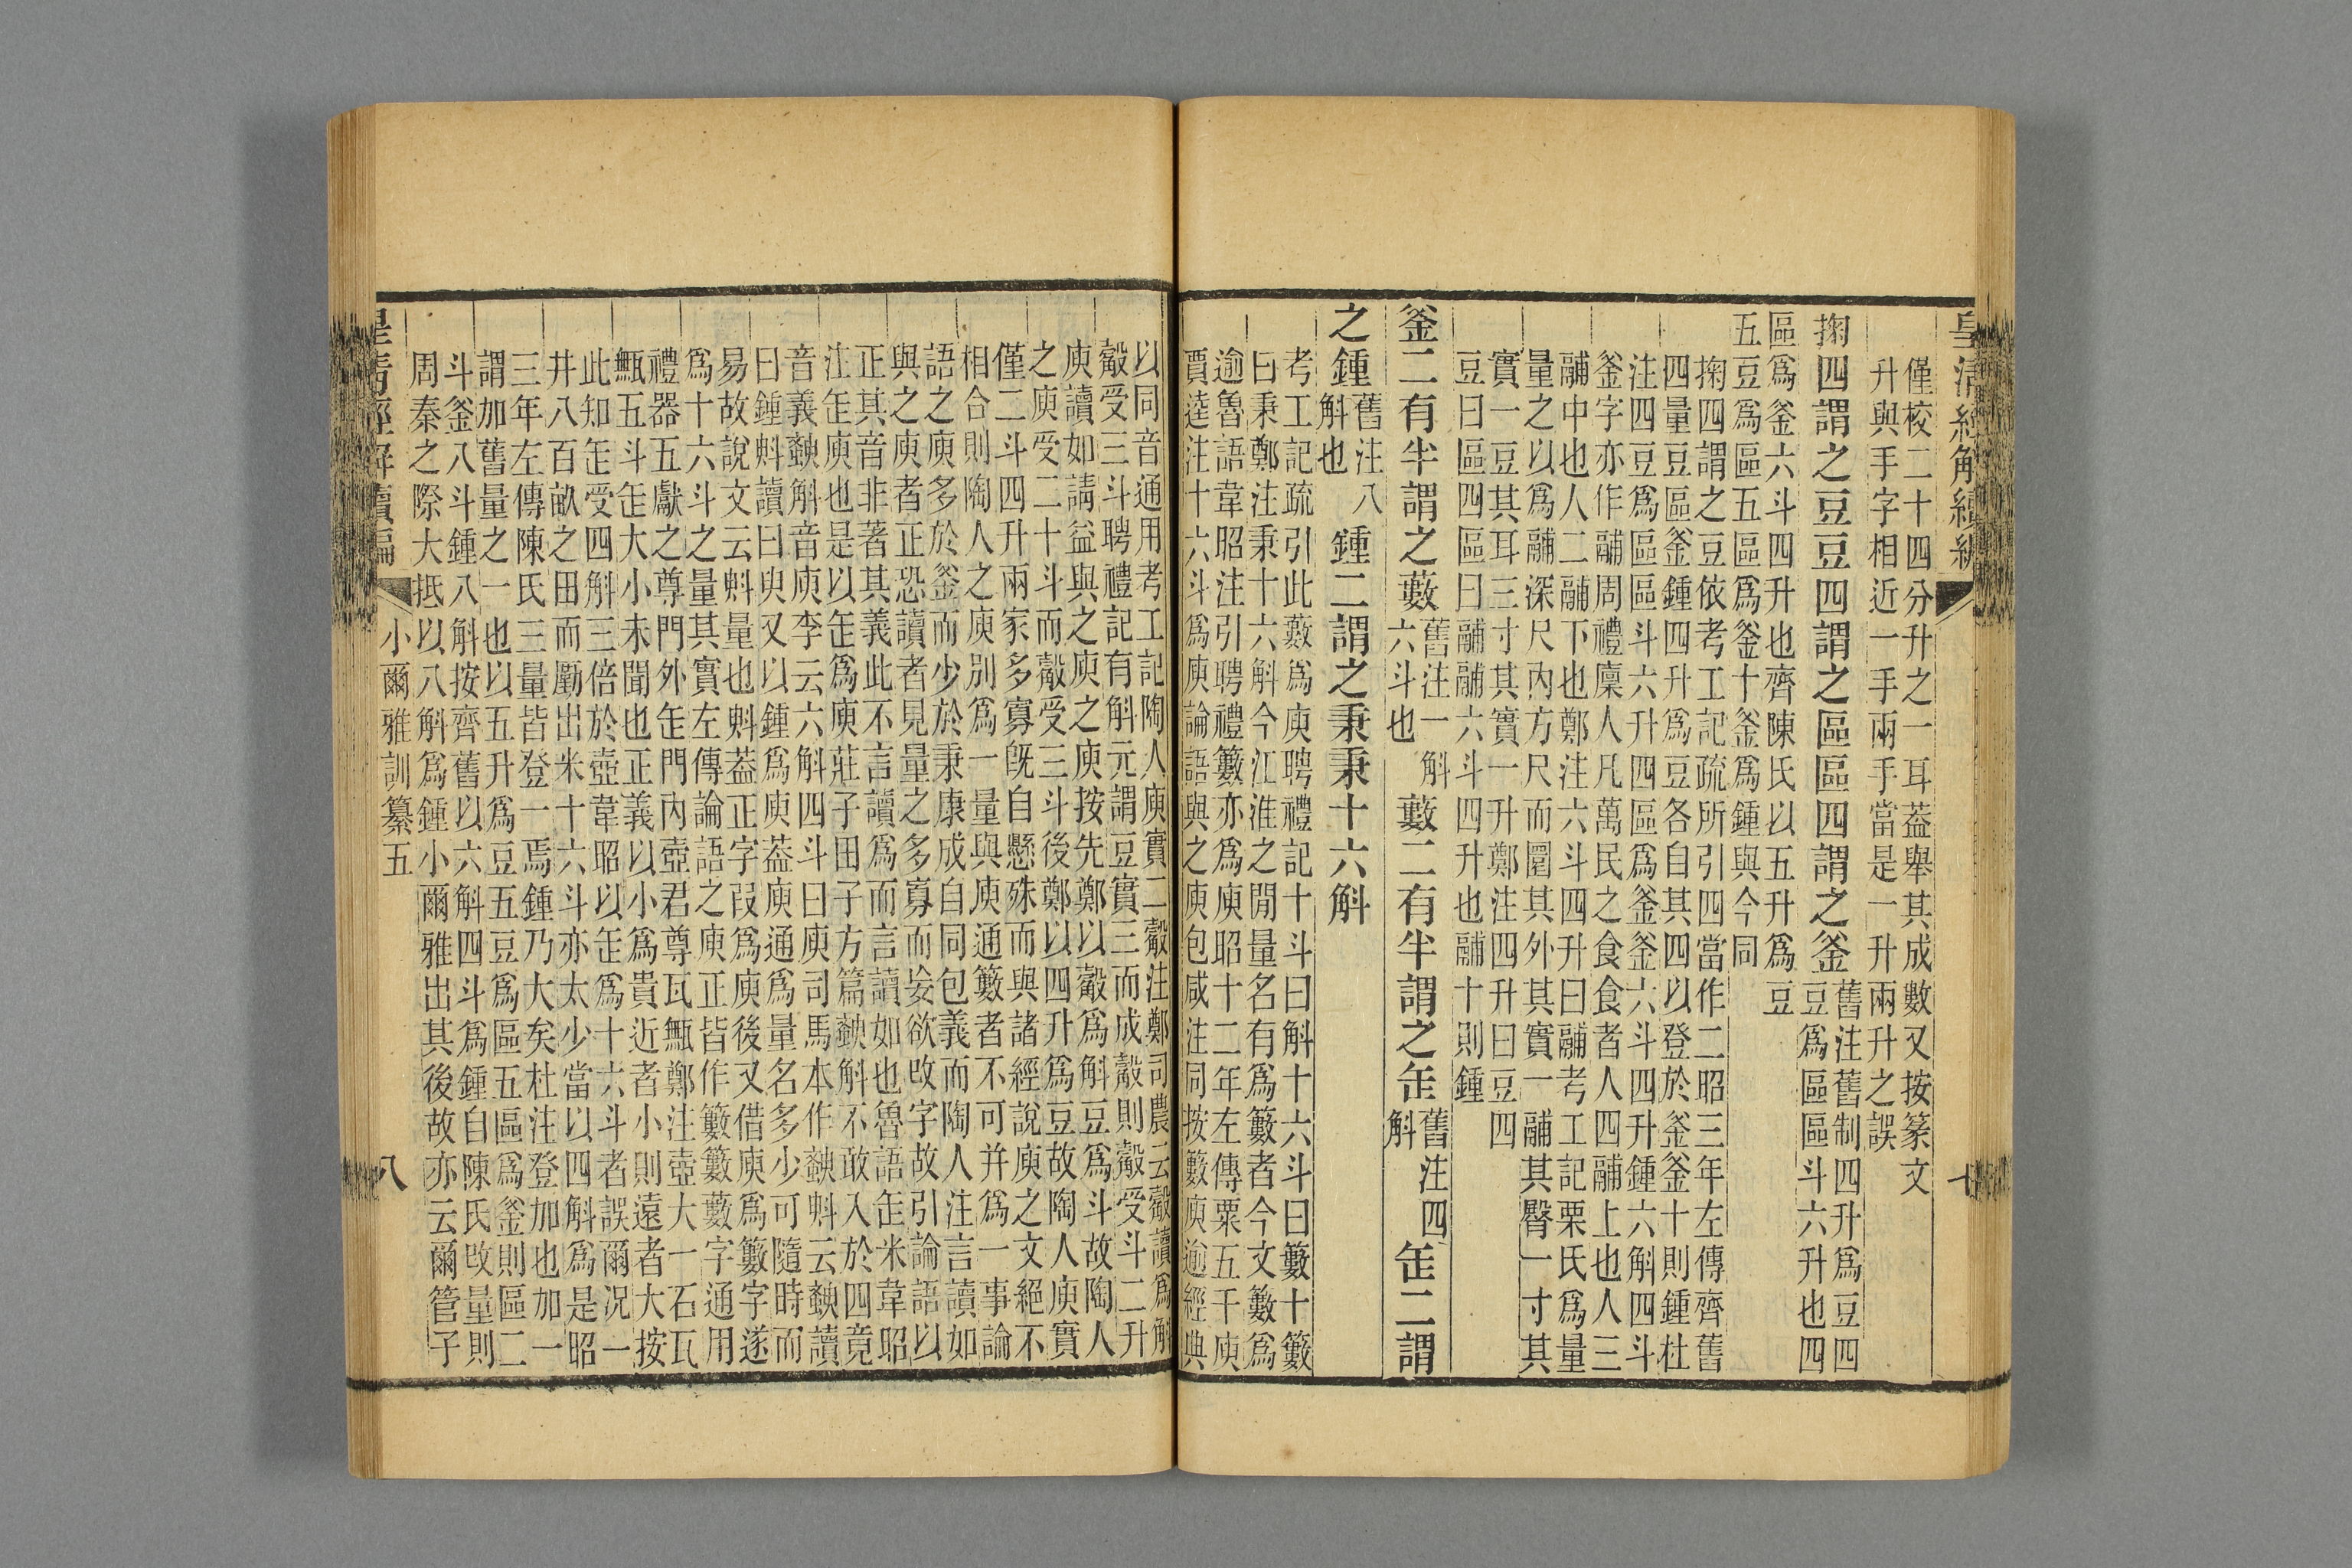 皇清經解續編
七
僅校二十四分升之一耳葢舉其成數又按篆文
升與手字相近一手兩手當是一升兩升之誤
掬四謂之豆豆四謂之區區四謂之釜舊注舊制四升爲豆四
豆爲區區斗六升也四
區爲釜六斗四升也齊陳氏以五升爲豆
五豆爲區五區爲釜十釜爲鍾與今同
掬四謂之豆依考工記疏所引四當作二昭三年左傳齊舊
四量豆區釜鍾四升爲豆各自其四以登於釜釜十則鍾杜
注四豆爲區區斗六升四區爲釜釜六斗四升鍾六斛四斗
釜字亦作鬴周禮廩人凡萬民之食食者人四鬴上也人三
鬴中也人二鬴下也鄭注六斗四升曰鬴考工記㮚氏爲量
量之以爲鬴深尺內方尺而圜其外其實一鬴其臀一寸其
實一豆其耳三寸其實一升鄭注四升曰豆四
豆曰區四區曰鬴鬴六斗四升也鬴十則鍾
釜二有半謂之藪舊注一斛
六斗也藪二有半謂之缶舊注四
斛缶二謂
之鍾舊注八
斛也鍾二謂之秉秉十六斛
考工記疏引此藪爲庾聘禮記十斗曰斛十六斗曰籔十籔
曰秉鄭注秉十六斛今江淮之閒量名有爲籔者今文籔爲
逾魯語韋昭注引聘禮籔亦爲庾昭十二年左傳粟五千庾
賈逵注十六斗爲庾論語與之庾包咸注同按籔庾逾經典
以同音通用考工記陶人庾實二觳注鄭司農云觳讀爲斛
觳受三斗聘禮記有斛元謂豆實三而成觳則觳受斗二升
庾讀如請益與之庾之庾按先鄭以觳爲斛豆爲斗故陶人
之庾受二十斗而觳受三斗後鄭以四升爲豆故陶人庾實
僅二斗四升兩家多寡旣自懸殊而與諸經說庾之文絕不
相合則陶人之庾別爲一量與庾通籔者不可并爲一事論
語之庾多於釜而少於秉康成自同包義而陶人注言讀如
與之庾者正恐讀者見量之多寡而妄欲改字故引論語以
正其音非著其義此不言讀爲而言讀如也魯語缶米韋昭
注缶庾也是以缶爲庾莊子田子方篇䠶斛不敢入於四竟
音義䠶斛音庾李云六斛四斗曰庾司馬本作䠶㪺云䠶讀
曰鍾㪺讀曰臾又以鍾爲庾葢庾通爲量名多少可隨時而
易故說文云㪺量也㪺葢正字叚爲庾後又借庾爲籔字遂
爲十六斗之量其實左傳論語之庾正皆作籔籔藪字通用
禮器五獻之尊門外缶門內壺君尊瓦甒鄭注壺大一石瓦
甒五斗缶大小未聞也正義以小爲貴近者小則遠者大按
此知缶受四斛三倍於壺韋昭以缶爲十六斗者誤爾况一
井八百畝之田而勵出米十六斗亦太少當以四斛爲是昭
三年左傳陳氏三量皆登一焉鍾乃大矣杜注登加也加一
謂加舊量之一也以五升爲豆五豆爲區五區爲釜則區二
斗釜八斗鍾八斛按齊舊以六斛四斗爲鍾自陳氏改量則
周秦之際大抵以八斛爲鍾小爾雅出其後故亦云爾管子
皇清經解續編
小爾雅訓纂五
八